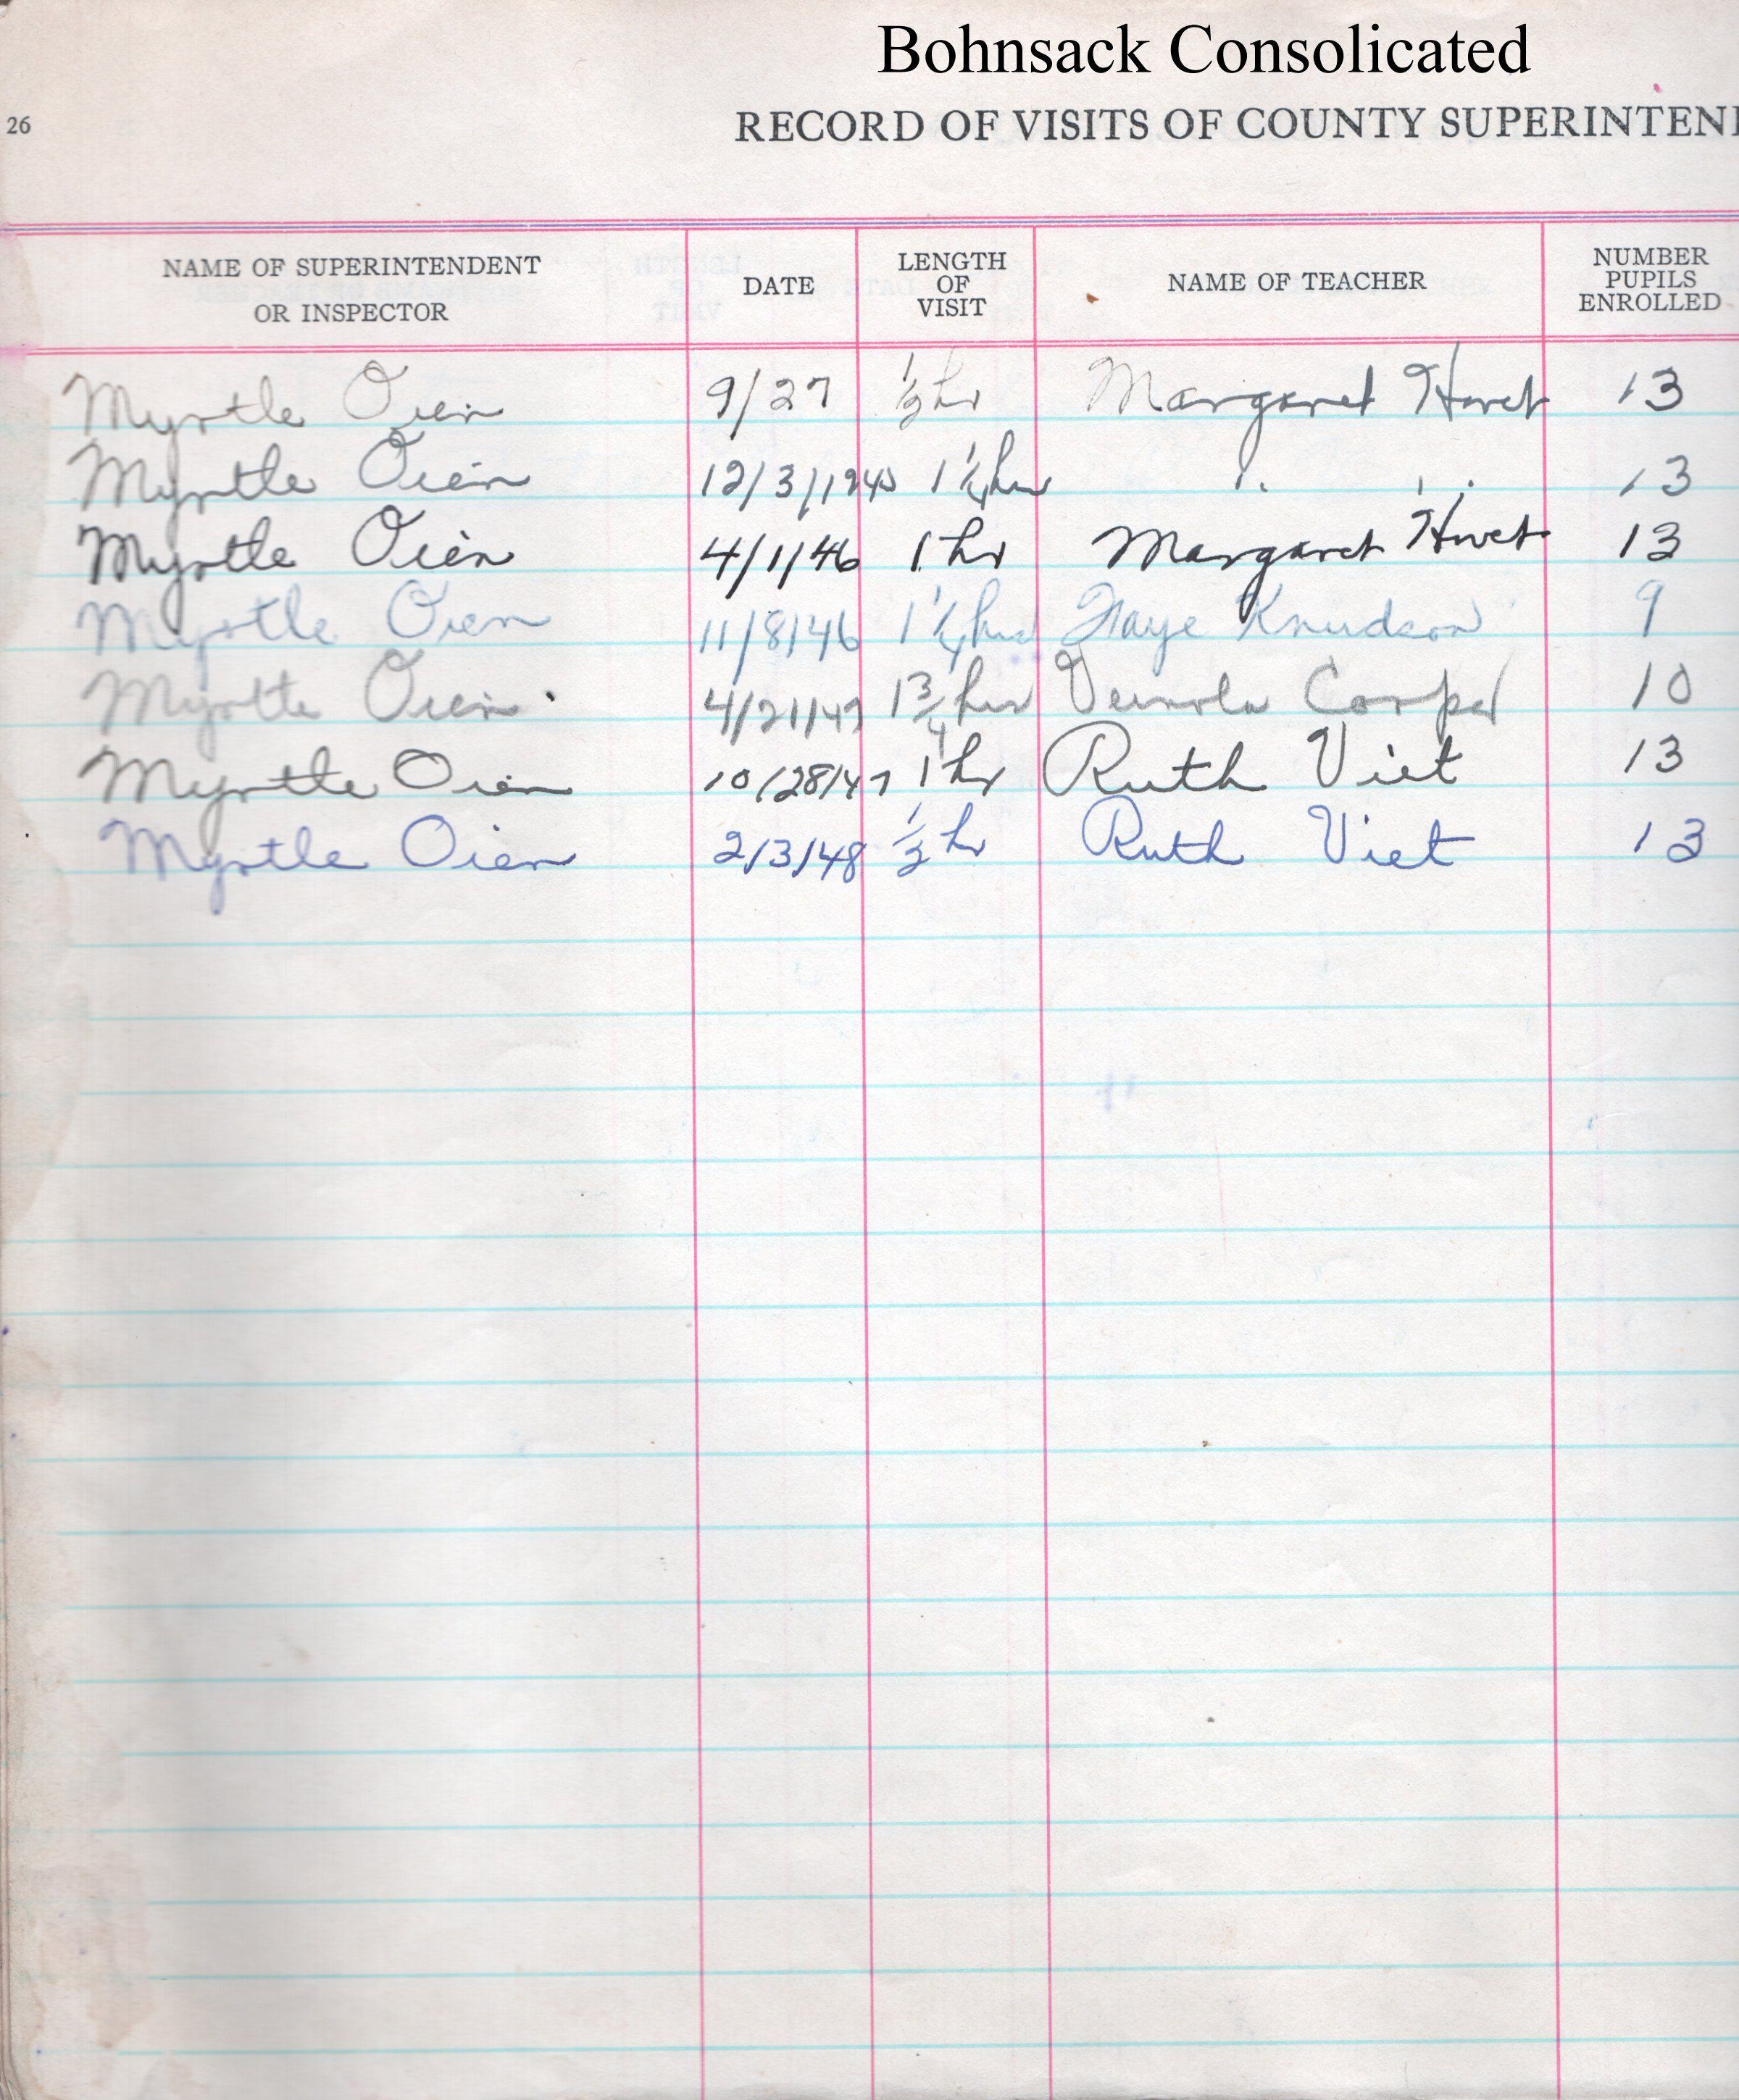 Bohnsack Consolicated
26
RECORD OF VISITS OF COUNTY SUPERINTEN
NAME OF SUPERINTENDENT OR INSPECTOR DATE LENGTH OF VISIT NAME OF TEACHER NUMBER PUPILS ENROLLED
Myrtle Oien 9/27 1/2 hr Margaret 13
Myrtle Oien 12/3/1945 1 1/4 hrs " " 13
Myrtle Oien 4/1/46 1 hr Margaret 13
Myrtle Oien 11/8/46 1 1/4 hrs Faye Knudson 9
Myrtle Oien 4/21/47 1 3/4 hrs 10
Myrtle Oien 10/28/47 1 hr Ruth Viet 13
Myrtle Oien 2/3/48 1/2 hr Ruth Viet 13